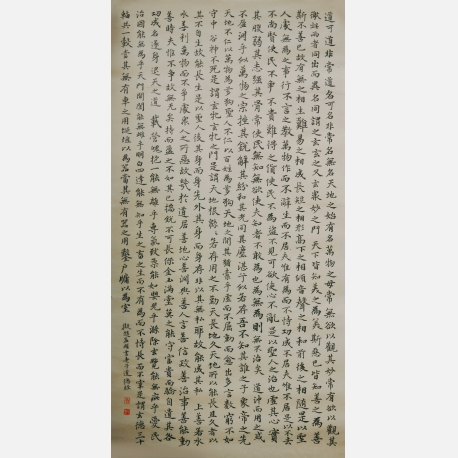 道可道非常道名可名非常名無名天地之始有名萬物之母常無欲以觀其妙常有欲以觀其
徼此兩者同出而異名同謂之玄玄之又玄衆妙之門天下皆知美之為美斯惡已皆知善之為善
斯不善已故有無之相生難易之相成長短之相形高下之相傾音聲之相和前後之相隨是以聖
人處無為之事行不言之教萬物作而不辭生而不有為而不恃功成不居夫惟不居是以不去
不尚賢使民不爭不貴難得之貨使民不為盜不見可欲使心不亂是以聖人之治也虛其心實
其腹弱其志強其骨常使民無知無欲使夫知者不敢為也為無為則無不治矣 道沖而用之或
不盈淵乎似萬物之宗挫其銳解其紛和其光同其塵湛乎似若存吾不知其誰之子象帝之先
天地不仁以萬物為芻狗聖人不仁以百姓為芻狗天地之間其猶橐乎虛而不屈動而愈出多言數窮不如
守中谷神不死是謂玄牝玄牝之門是謂天地根綿綿若存用之不勤天長地久天地所以能長且久者以
其不自生故能長生是以聖人後其身而身先外其身而身存非以其無私耶故能成其私 上善若水
水善利萬物而不爭處衆人之所惡故幾於道居善地心善淵與善人言善信政善治事善能動
善時夫惟不爭故無尤矣持而盈之不如其已揣銳不可長保金玉滿堂莫之能守富貴而驕自遺其咎
功成名遂身退天之道 載營魄抱一能無離乎專氣致柔能如嬰兒乎滌除玄覽能無疵乎愛民
治國能無為乎天門開闔能無雌乎明白四達能無知乎生之畜之生而不有為而不恃長而不宰是謂玄德三十
輻共一轂當其無有車之用埏埴以為器當其無有器之用鑿戶牖以為室 書老子道德經